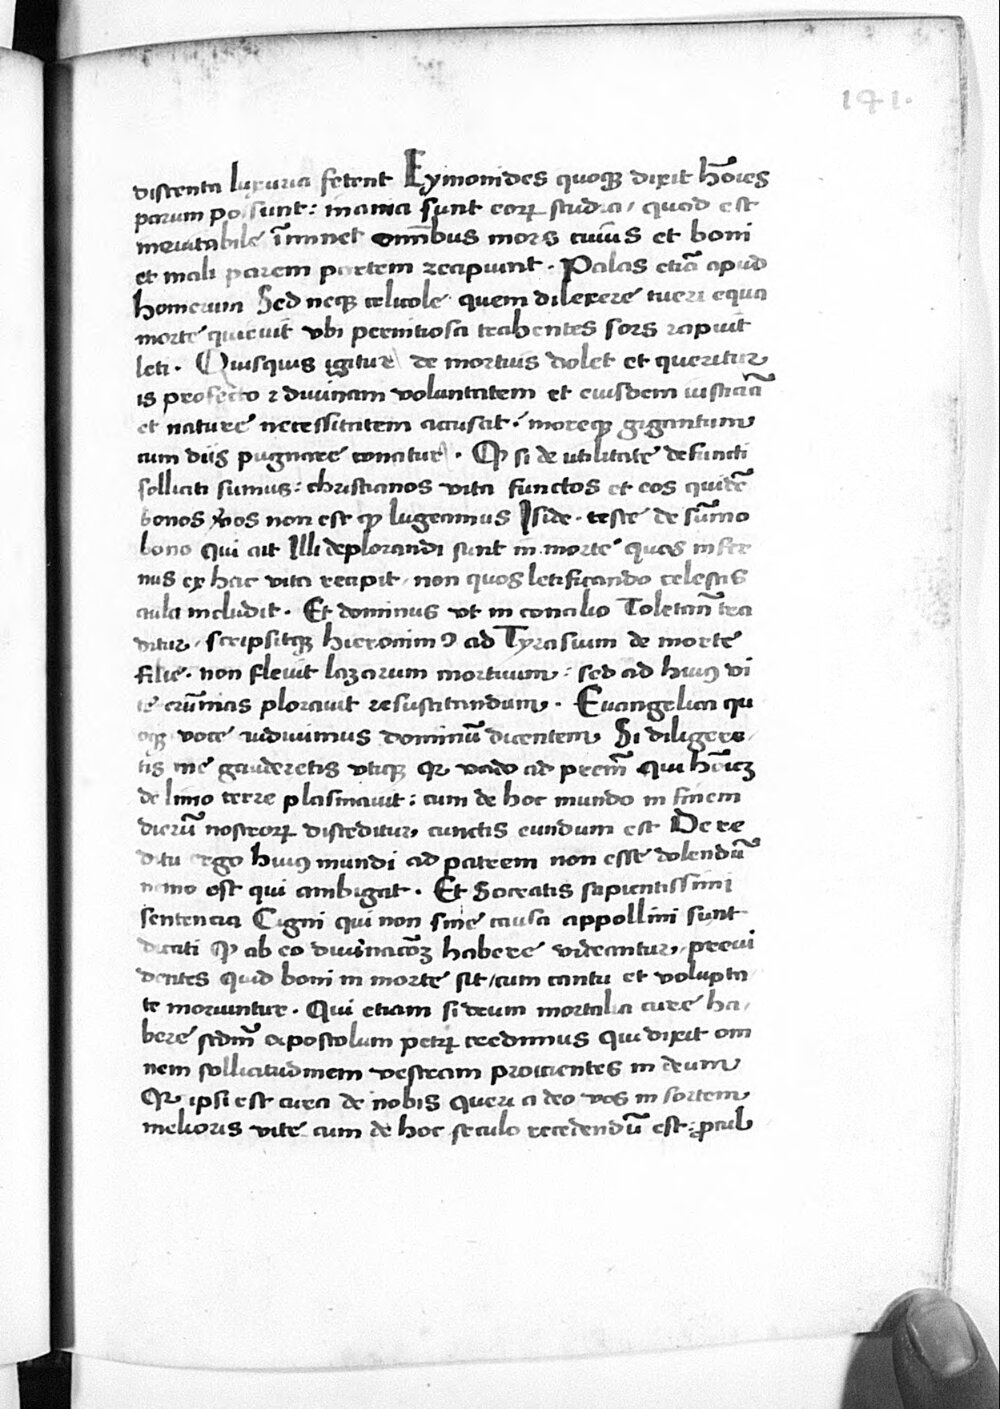 141.
distenta luxuria fetent Eymonides quoqꝫ dixit hōies
parum possunt: inania sunt eoꝝ studia, quod est
ineuitabile īminet omībus mors cuius et boni
et mali parem partem recipiunt. Palas etiā apud
homerum Sed neqꝫ celicole quem dilexere tueri equa
morte quieuit vbi pernitiosa trahentes sors rapuit
leti. Quisquis igitur de mortuis dolet et queritur
is profecto ⁊ diuinam voluntatem et eiusdem iusticiā
et nature necessitatem accusat. moreqꝫ gigantum
cum diis pugnare conatur. Ꝙ si de utilitate defuncti
solliciti sumus: christianos vita functos et eos quidē
bonos xp̄os non est ꝙ lugeamus Iside. teste de sūmo
bono qui ait Illi deplorandi sunt in morte quos infer
nus ex hac vita recipit, non quos letificando celestis
aula includit. Et dominus vt in concilio Toletan̄ tra
ditur, scripsitqꝫ hieronimꝰ ad Tyrasium de morte
filie. non fleuit lazarum mortuum: sed ad huiꝰ vi
te erūnas plorauit resuscitandum. Euangelica qu
oqꝫ voce audiuimus dominū dicentem Si diligere
tis me gauderetis vtiqꝫ qꝛ vado ad prem̄ Qui hōiēꝫ
de limo terre plasmauit: cum de hoc mundo in finem
dierū nostroꝝ disceditur, cunctis eundum est De re
ditu ergo huiꝰ mundi ad patrem non esse dolendū
nemo est qui ambigat. Et Socratis sapientissimi
sentencia Cigni qui non sine causa appollini sunt
dicati ꝙ ab eo diuinacōꝫ habere videantur, preui
dentes quid boni in morte sit, cum cantu et volupta
te moriuntur. Qui etiam si deum mortalia cure ha,
bere sedm̄ apostolum petꝝ credimus qui dixit om
nem sollicitudinem vestram proicientes in deum
Qꝛ ipsi est cura de nobis queri a deo vos in sortem
melioris vite cum de hoc seculo recedendū est: procul